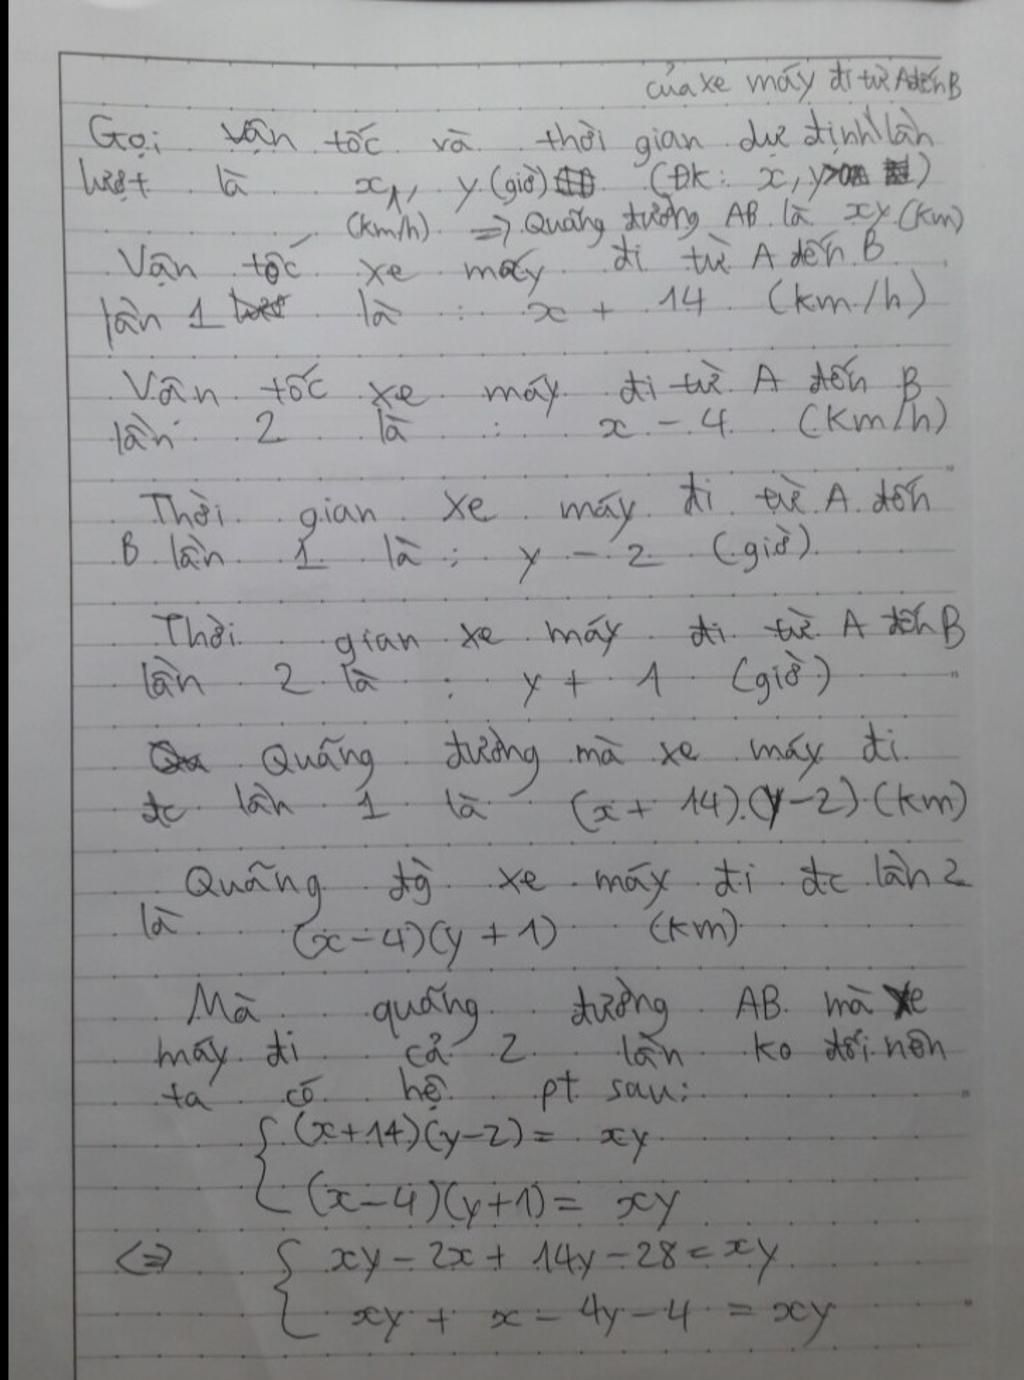 của xe máy đi từ A đến B
Gọi vận tốc và thời gian dự định lần
lượt là x, y (giờ) (ĐK: x, y>0)
(km/h) => Quãng đường AB là xy (km)
Vận tốc xe máy đi từ A đến B
lần 1 là : x + 14 (km/h)
Vân tốc xe máy đi từ A đến B
lần 2 là : x - 4 (km/h)
Thời gian xe máy đi từ A đến
B lần 1 là : y - 2 (giờ)
Thời gian xe máy đi từ A đến B
lần 2 là : y + 1 (giờ)
Quãng đường mà xe máy đi
đc lần 1 là (x + 14).(y-2) (km)
Quãng đg̀ xe máy đi đc lần 2
là (x-4)(y + 1) (km)
Mà quãng đường AB mà xe
máy đi cả 2 lần ko đổi nên
ta có hệ pt sau:
{ (x+14)(y-2) = xy
(x-4)(y+1) = xy
<=> { xy - 2x + 14y - 28 = xy
xy + x - 4y - 4 = xy